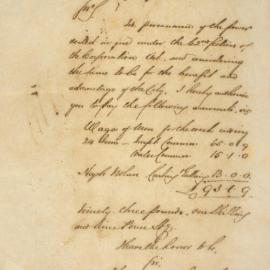 Sir
In pursuance of the power
vested in you under the 62nd Section of
the Corporation Act, and considering
the same to be for the benefit and
advantage of the City, I hereby authorise
you to pay the following amounts, viz
Wages of Men for the week ending
24 June - Common 65. 0. 9
Water Common 15. 1. 0
Hugh Nolan Carting 13. 0. 0
£ 93. 1. 9
ninety three pounds, one Shilling
and nine Pence Stg.
I have the honor to be
Sir